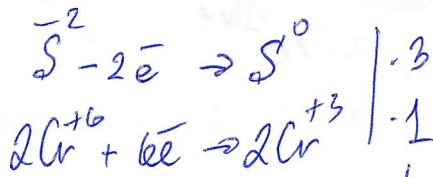 S⁻² - 2ē → S⁰ | ·3
2Cr⁺⁶ + 6ē → 2Cr⁺³ | ·1